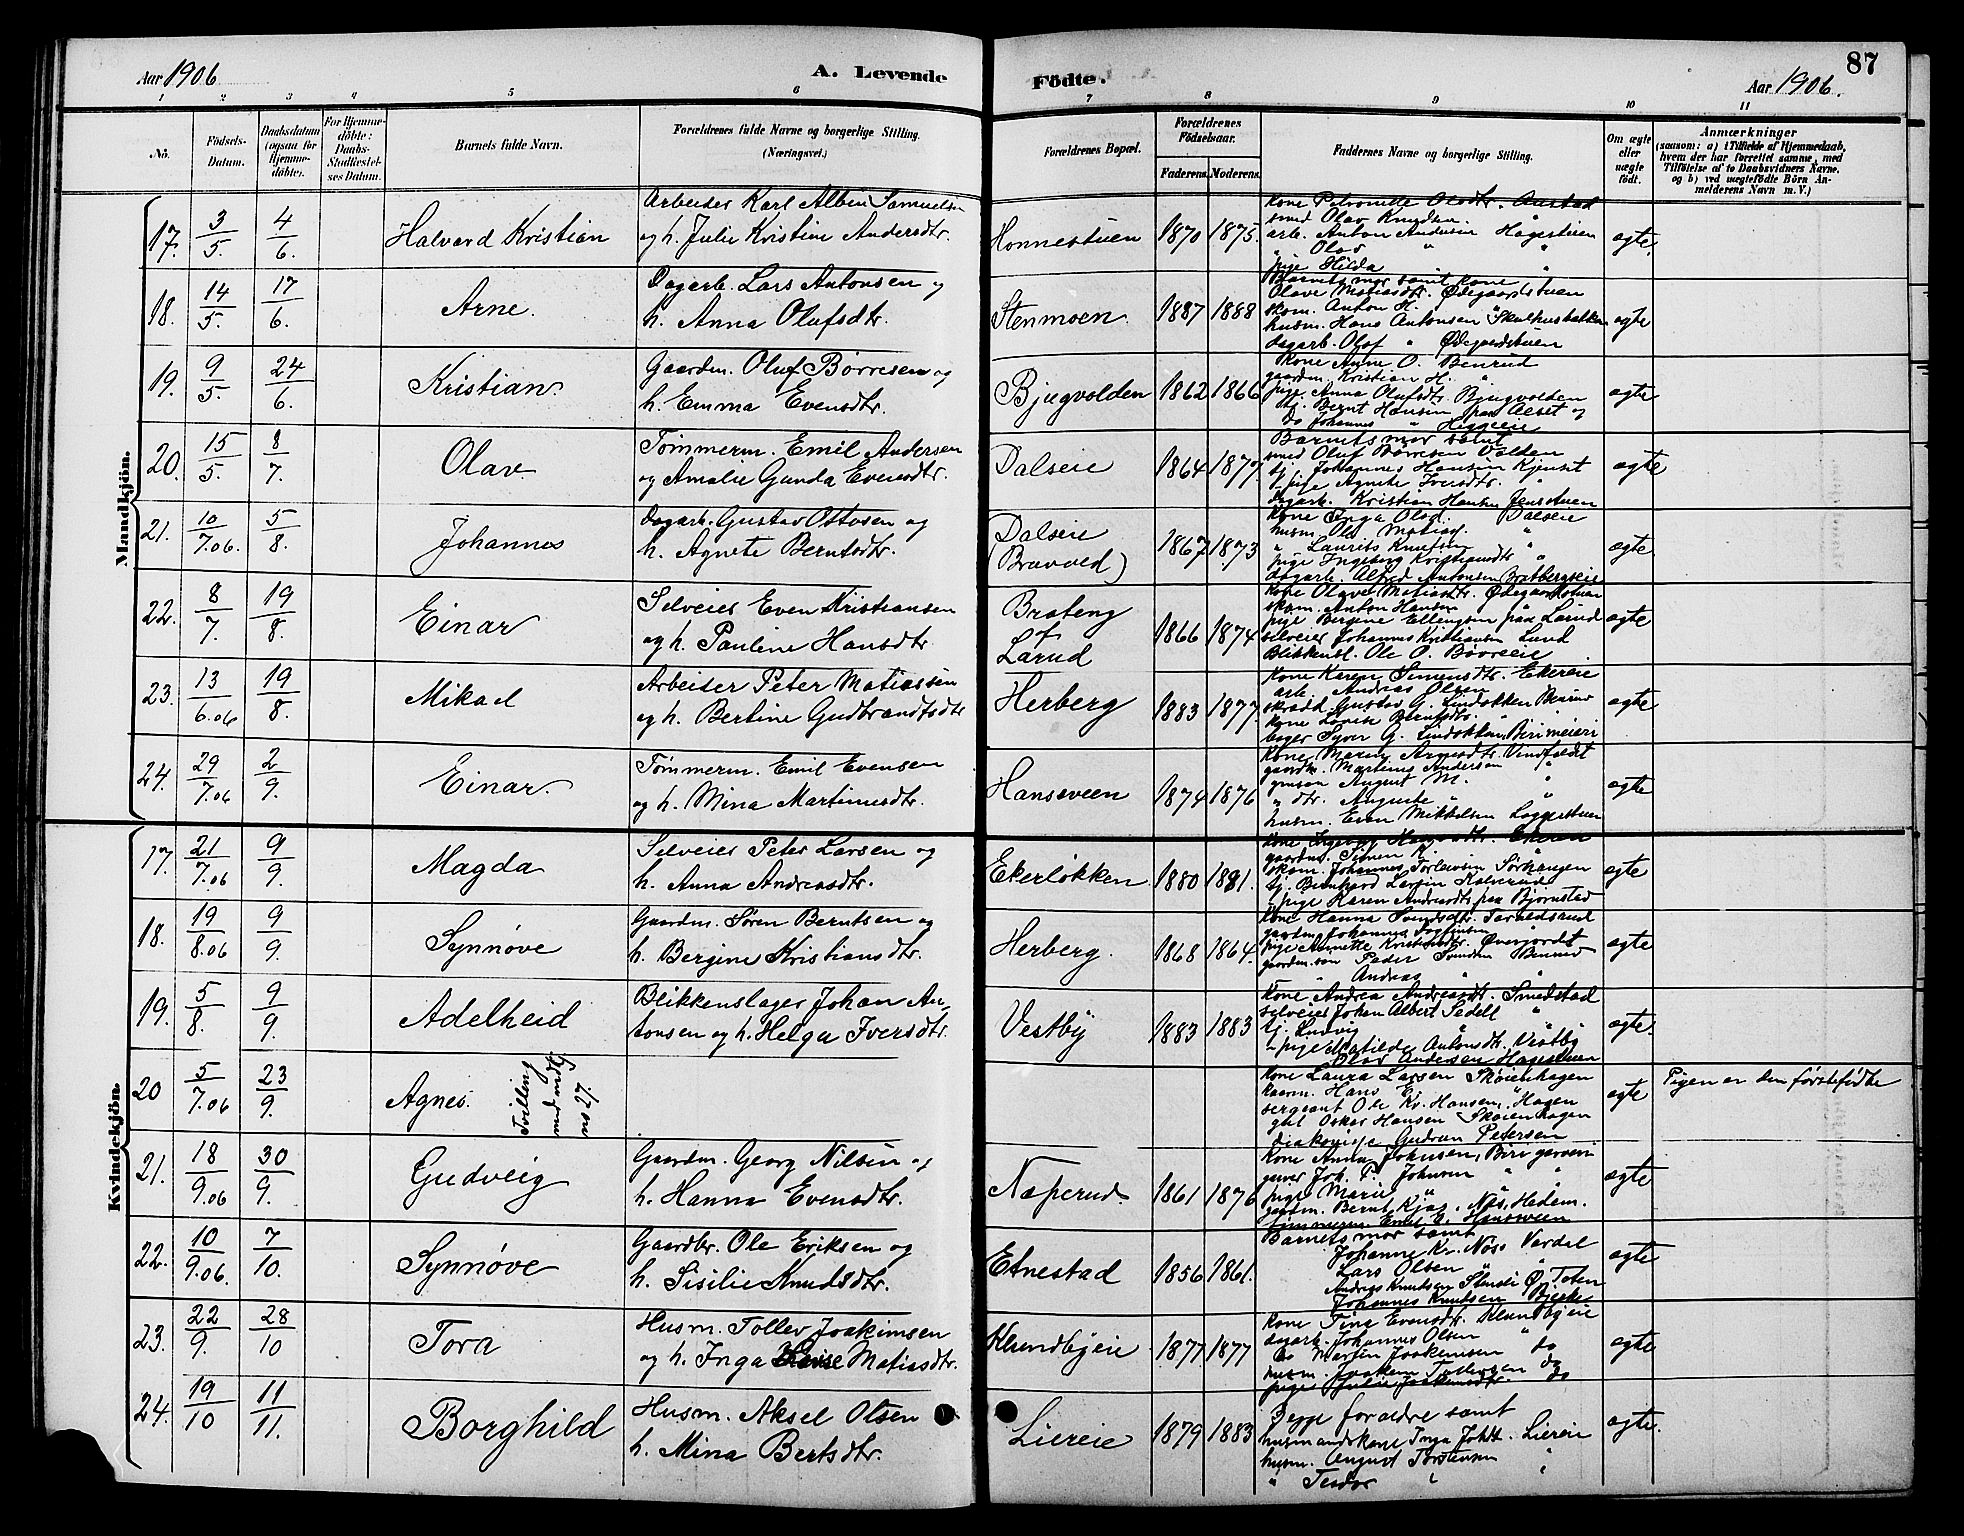 Aar 1906 A. Levende Födte. Aar 1906. 87
1 2 3 4 5 6 7 8 9 10 11
No. Födsels-Datum. Daabsdatum (ogsaa for Hjemme-döbte). For Hjemme-döbte: Daabs-Stadfæstelses Datum. Barnets fulde Navn. Forældrenes fulde Navne og borgerlige Stilling. (Næringsvei.) Forældrenes Bopæl. Forældrenes Födselsaar. Faderens. Moderens. Faddernes Navne og borgerlige Stilling. Om ægte eller uægte födt. Anmærkninger (saasom: a) i Tilfælde af Hjemmedaab, hvem der har forrettet samme, med Tilföielse af to Daabsvidners Navne. og b) ved uægtefödte Börn Anmelderens Navn m. V.)
Mandkjön.
17. 3/5. 4/6. Halvard Kristian Arbeider Karl Albin Samuelsen
og h. Julie Kristine Andersdtr. Honnestuen 1870 1875. ægte.
kone Petronelle Olsdtr. Aastad
smed Olav Knudsen.
arb. Anton Andersen Hagestuen
" Olav " "
pige Hilda "
18. 14/5. 17/6. Arne. Dagarb. Lars Antonsen og
h. Anna Olufsdtr. Stenmoen. 1887 1888 ægte
Barnets mor samt kone
Olave Matiasdtr. Ødegaardstuen
skom. Anton H. "
husm. Hans Antonsen Skulhusbakken
dagarb. Olof " Ødegaardstuen
19. 9/5. 24/6. Kristian. Gaardm. Oluf Børresen og
h. Emma Evensdtr. Bjugvolden 1862 1866 ægte
Kone Anne O. Benrud
gaardm. Kristian H. "
pige Anna Olufsdtr. Bjugvolden
tj. Bernt Hansen paa Alset og
Do Johannes " Higgeeie
20. 15/5. 8/7. Olav Tømmerm. Emil Andersen
og Amalie Gunda Evensdtr. Dalseie 1864 1877. ægte
Barnets mor samt
smed Oluf Børresen Volden
tj. Johannes Hansen Kjenset
tj. pige Agnete Iversdtr. "
dagarb. Kristian Hansen Jensstuen
21. 10/7.06. 5/8. Johannes Dagarb. Gustav Ottosen og
h. Agnete Berntsdtr. Dalseie
(Bravold) 1867 1873 ægte
Kone Inga Olsd. Dalseie
husm. Ole Matiad. "
" Laurits Knudsen "
pige Ingeborg Kristiansdtr "
dagarb. Alfred Antonsen Bratbergseie
22. 8/7. 19/8. Einar Selveier Even Kristiansen
og h. Pauline Hansdtr. Brateng
f. Larud 1866 1874 ægte
Kone Olave Matiasdtr. Ødegaardstuen
skom. Anton Hansen "
pige Bergine Ellingsen paa Larud
selveier Johannes Kristiansen Lund
Blikkensl. Ole O. Børreeie
23. 13/6.06 19/8. Mikael Arbeider Peter Matiassen
og h. Bertine Gudbrandsdtr Herberg 1883 1877. ægte
Kone Karen Simensdtr. Ekereie
arb. Andreas Olsen "
skrædd. Gustav G. Lindløkken
kone Lovise Berntsdtr. "
bager Syver G. Lindløkken, Birimeieri
24. 29/7.06 2/9. Einar. Tømmerm. Emil Evensen
og h. Mina Martinusdtr. Hansveen 1874 1876 ægte
Kone Maren Arnesdtr. Vindfaldet
gaardm. Martinus Andersen "
gmsøn August M. "
" dtr. Auguste " "
husm. Even Mikkelsen Laggerstuen
Kvindekjön.
17. 21/7.06 9/9. Magda Selveier Peter Larsen og
h. Anna Andreasdtr. Ekerløkken 1880 1881. ægte
Kone Ingeborg Ekeren
gaardm. Simen K. "
skom. Johannes Torleivsen Sørhaugen
tj. Bernhard Larsen Kalverud
" pige Karen Andreasdtr paa Bjørnstad
18. 19/8.06 9/9. Synnøve Gaardm. Søren Berntsen og
h. Bergine Kristiansdtr. Herberg. 1868 1864. ægte
Kone Hanna Svendsdtr.
gaardm. Johannes "
pige Annette Kristiansdtr. Øverjordet
gaardm. søn Peder Svendsen Bennerud
" Andreas " "
19. 5/8. 9/9. Adelheid Blikkenslager Johan An-
tonsen og h. Helga Iversdtr. Vestby 1883 1883 ægte.
Kone Andrea Andreasdtr. Smedstad
selveier Johan Albert Sedell "
tj. Ludvig "
" pige Matilde Antonsdtr. Vestby
Olav Andersen Hagestuen
20 5/7.06 23/9. Agnes. Tvilling med mdkj no 27. ægte Pigen er den førstefødte
Kone Laura Larsen Skøienhagen
kaarm. Hans E. "
sergeant Ole Kr. Hansen, Hagen
ght Oskar Hansen Skøienhagen
diakonisse Gudrun Petersen
21. 18/9.06 30/9. Gudveig Gaardm. Georg Nilsen og
h. Hanna Evensdtr. Næperud 1861 1876 ægte
Kone Anna Johnsen, Biri garveri
garver Joh. P. Johnsen " "
pige Marie " "
gaardm. Bernt Kjos, Nas, Hedem.
tømmerm. Emil E. Hansveen
22. 10/9.06. 7/10. Synnøve Gaardbr. Ole Eriksen og
h. Sisilie Knudsdtr. Etnestad 1856 1861. ægte
Barnets mor samt
Johanne Kr. Nøss Vardal
Lars Olsen " "
Andreas Knudsen Stensli Ø. Toten
Johannes Knudsen Bjerke
23. 22/9. 28/10 Tora Husm. Tollev Joakimsen
og h. Inga Matiasdtr. Klundbyeie 1877 1877 ægte
Kone Tina Evensdtr. Klundbyeie
dagarb. Johannes Olsen "
Do Martin Joakimsen do
husm. Joakim Tollevsen do
pige Julie Joakimsdtr. do
24. 19/10 11/11. Borghild Husm. Aksel Olsen
h. Mina Bertsdtr. Liereie 1879 1883 ægte.
Begge forældre samt
husmandskone Inga Johdt. Liereie
husm. August Torstensen "
" Teodor " "